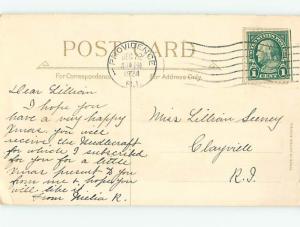 POST CARD
PROVIDENCE
DEC
1924
R.I.
For Correspondence
For Address Only
1 CENT 1
Dear Lillian
I hope you
have a very happy
Xmas. you will
receive the Needlecraft
for which I subscribed
for you for a little
Xmas present to you
from me & hope you
will like it
From Melia R.
Miss Lillian Seeney
Clayville
R.I.